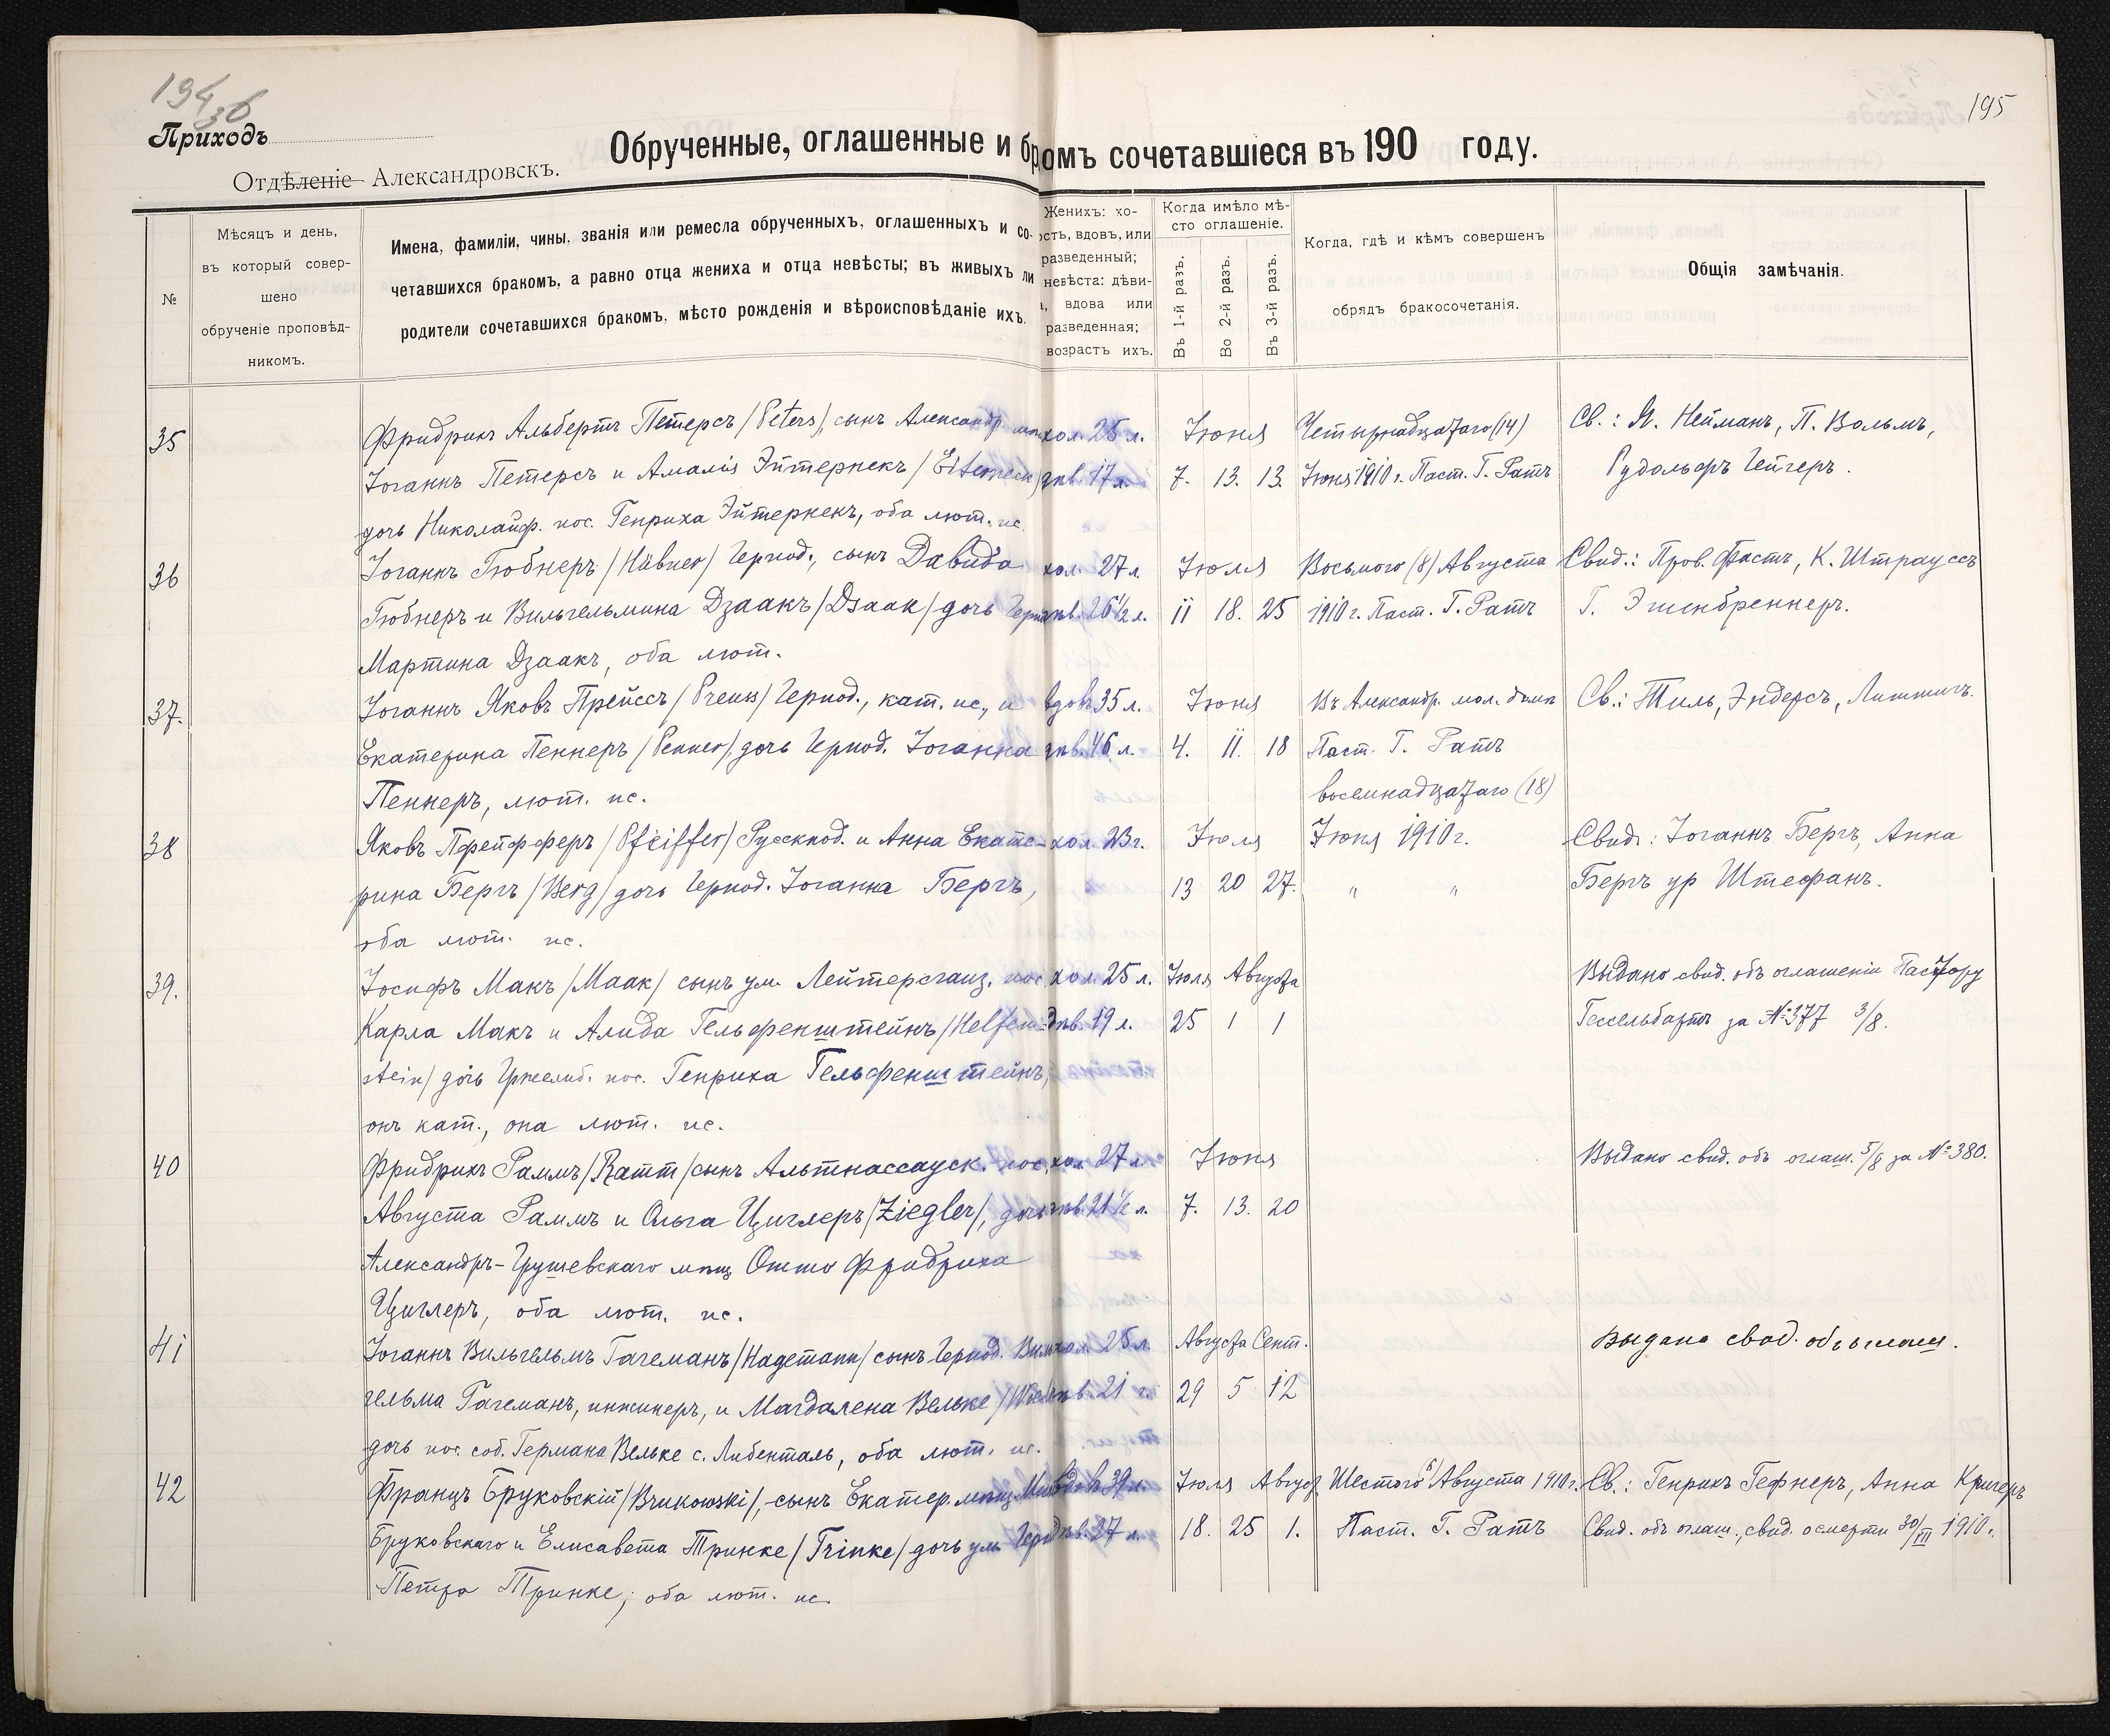 194б
195
Приходъ
Отдѣленіе Александровскъ.
Обрученные, оглашенные и бр омъ сочетавшіеся въ 190 году.
№
Мѣсяцъ и день,
въ который совер-
шено
обрученіе проповѣд-
никомъ.
Имена, фамиліи, чины, званія или ремесла обрученныхъ, оглашенныхъ и со-
четавшихся бракомъ, а равно отца жениха и отца невѣсты; въ живыхъ ли
родители сочетавшихся бракомъ, мѣсто рожденія и вѣроисповѣданіе ихъ.
Женихъ: хо-
ость, вдовъ, или
разведенный;
невѣста: дѣви-
а, вдова или
разведенная;
возрастъ ихъ.
Когда имѣло мѣ-
сто оглашеніе.
Въ 1-й разъ.
Во 2-й разъ.
Въ 3-й разъ.
Когда, гдѣ и кѣмъ совершенъ
обрядъ бракосочетанія.
Общія замѣчанія.
35
Фридрихъ Альбертъ Петерсъ /Peters/, сынъ Александр.
Іоганнъ Петерсъ и Амалія Эйтернекъ /Eiterneck/
дочь Николайф. пос. Генриха Эйтернекъ, оба лют. ис.
хол. 25 л.
дѣв. 17 л.
Іюня
7. 13. 13.
Четырнадцатаго (14)
Іюня 1910 г. Паст. Г. Ратъ
Св.: Я. Нейманъ, П. Вольмъ,
Рудольфъ Гейгеръ.
36
Іоганнъ Гюбнеръ /Hübner/ Череод., сынъ Давида
Гюбнеръ и Вильгельмина Дзаакъ /Dsaak/ дочь
Мартина Дзаакъ, оба лют.
хол. 27 л.
дѣв. 26½ л.
Іюля
11 18. 25
Восьмого (8) Августа
1910 г. Паст. Г. Ратъ
Свид.: Пров. Фастъ, К. Штрауссъ
Г. Эшенбреннеръ.
37.
Іоганнъ Яковъ Прейссъ /Preuss/ Черnod., кат. ис., и
Екатерина Пеннеръ /Penner/, дочь Іоганна
Пеннеръ, лют. ис.
вдов. 35 л.
дѣв. 46 л.
Іюня
4. 11. 18
Въ Александр. мол. домѣ
Паст. Г. Ратъ
восемнадцатаго (18)
Іюня 1910 г.
Св.: Тиль, Эндерсъ, Литтигъ.
38
Яковъ Пфейфферъ /Pfeiffer/ и Анна Екате-
рина Бергъ /Berg/ дочь Іоганна Бергъ,
оба лют. ис.
хол. 23 г.
Іюля
13 20 27.
" "
Свид: Іоганнъ Бергъ, Анна
Бергъ ур Штефанъ.
39.
Іосифъ Макъ /Maak/ сынъ ум. Лейтерсгауз. пос.
Карла Макъ и Алида Гельфенштейнъ /Helfen-
stein/ дочь пос. Генриха Гельфенштейнъ,
онъ кат., она лют. ис.
хол. 25 л.
дѣв. 19 л.
Іюля Августа
25 1 1
Выдано свид. объ оглашеніи Пастору
Гессельбартъ за № 377 3/8.
40
Фридрихъ Раммъ /Ramm/ сынъ Альтнассауск. пос.
Августа Раммъ и Ольга Циглеръ /Ziegler/, дочь
Александръ-Грушевскаго мѣщ. Отто Фридриха
Циглеръ, оба лют. ис.
хол. 27 л.
дѣв. 21½ л.
Іюня
7. 13. 20
Выдано свид. объ оглаш. 5/8 за № 380.
41
Іоганнъ Вильгельмъ Гагеманъ /Hagemann/ сынъ Виль
гельма Гагеманъ, инженеръ, и Магдалена Вельке
дочь пос. соб. Германа Вельке с. Либенталь, оба лют. ис.
хол. 25 л.
дѣв. 21 г.
Августа Сент.
29 5 12
Выдано свид. объ оглаш.
42
Францъ Бруковскій /Brukowski/, сынъ Екатер. мѣщ.
Бруковскаго и Елисавета Тринке /Trinke/ дочь ум.
Петра Тринке; оба лют. ис.
вдовъ 39 л.
дѣв. 27 л.
Іюля Август
18. 25 1.
Шестого 6 Августа 1910 г.
Паст. Г. Ратъ
Св.: Генрихъ Гефнеръ, Анна Кригеръ
Свид. объ оглаш., свид. о смерти 30/III 1910 г.